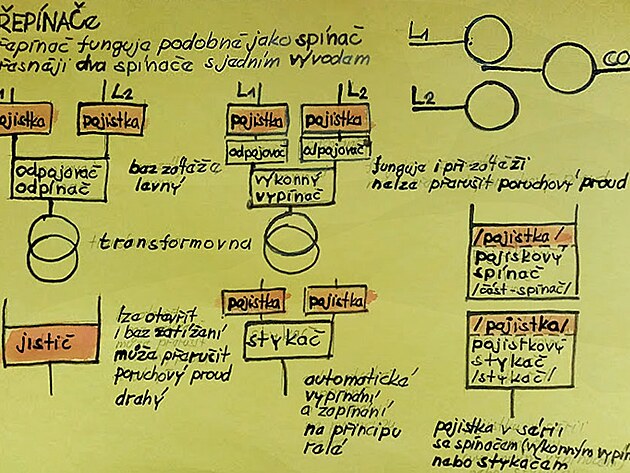 ŘEPÍNAČe
řapínač funguja podobná jako spínač
řasnáji dva spínača s jadním vývodam
L1
L2
CO
L1
L2
L1
L2
pajistka
pajistka
pajistka
pajistka
odpajovač
odpínač
bez zatáža
lavný
odpajovač
odpajovač
výkonný
vypínač
funguja i při zátaži
nalza přarušit poruchový proud
transformovna
/pajistka/
pajiskový
spínač
/část-spínač/
jistič
lza otavřít
i baz zatížaní
můža přaručit
poruchový proud
drahý
pajistka
pajistka
stykač
automatická
vypínání
a zapínání
na principu
ralá
/pajistka/
pajistkový
stykač
/stykač/
pajistka v sérii
sa spínačam (výkonným vypín
nabo stykačam